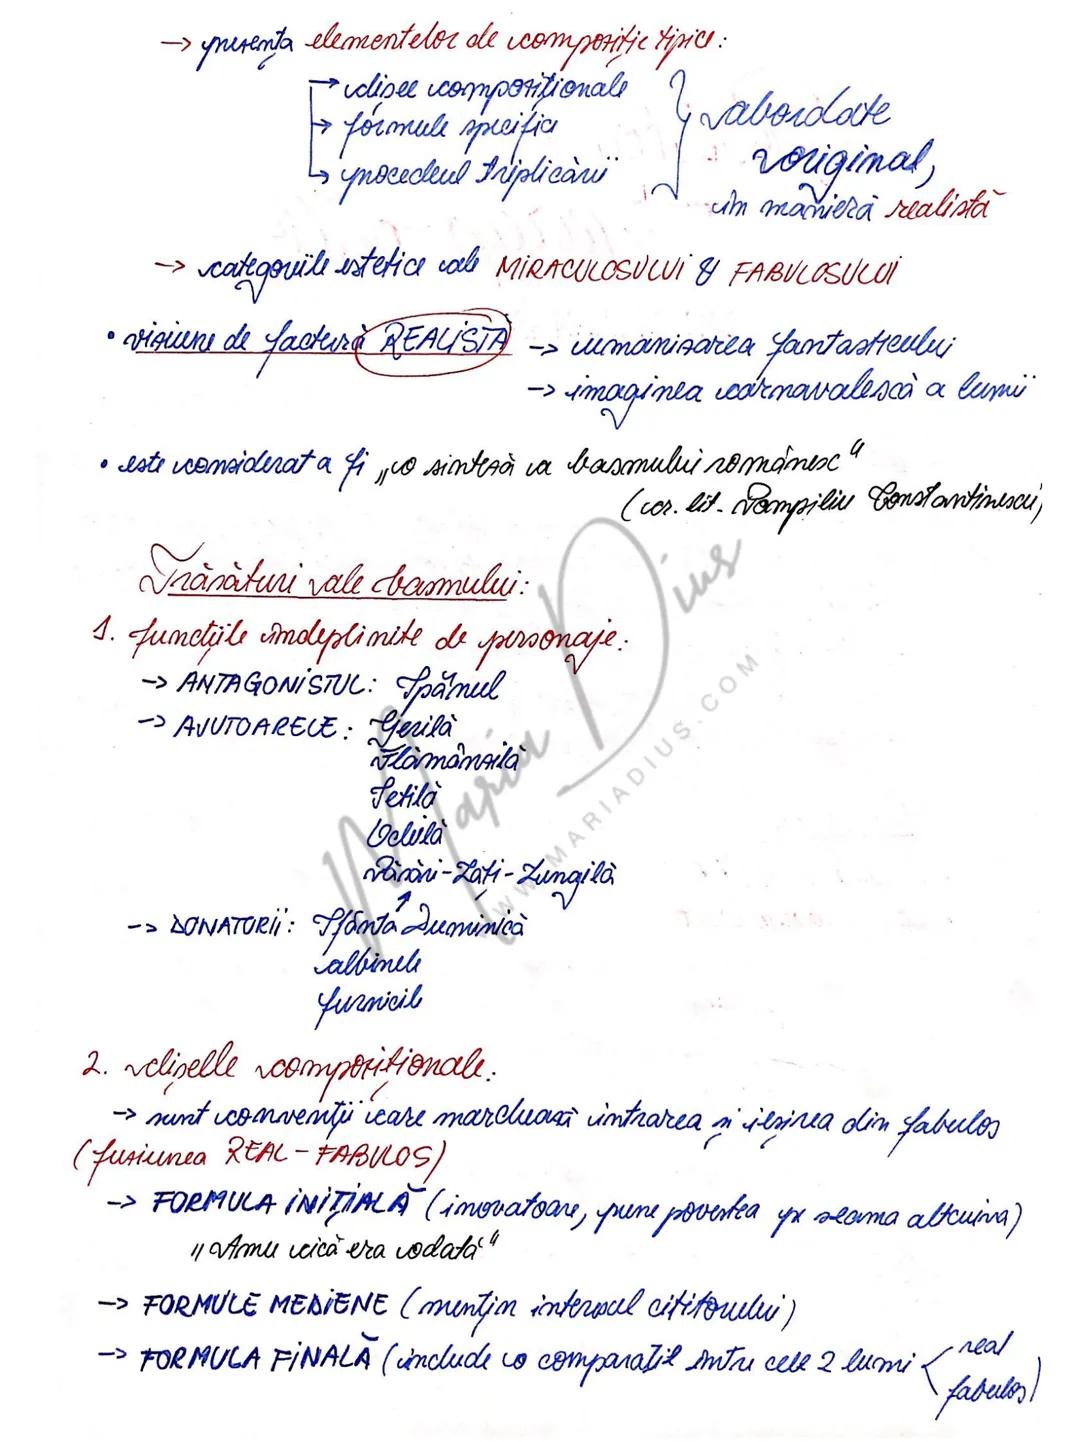 → prezența elementelor de compoziție tipice:
→ clișee compoziționale
→ formule specifice
→ procedeul triplicării
} abordate
original,
în manieră realistă
→ categoriile estetice ale MIRACULOSULUI & FABULOSULUI
• viziune de factură REALISTĂ → umanizarea fantasticului
→ imaginea carnavalescă a lumii
• este considerat a fi „o sinteză a basmului românesc"
(cr. lit. Pompiliu Constantinescu)
Trăsături ale basmului:
1. funcțiile îndeplinite de personaje:
→ ANTAGONISTUL: Spânul
→ AJUTOARELE: Gerilă
Flămânzilă
Setilă
Ochilă
Păsări-Lăți-Lungilă
→ DONATORII: Sfânta Duminică
albinele
furnicile
2. clișeele compoziționale:
→ sunt convenții care marchează intrarea și ieșirea din fabulos
(fuziunea REAL - FABULOS)
→ FORMULA INIȚIALĂ (inovatoare, pune povestea pe seama altcuiva)
„Amu cică era odată"
→ FORMULE MEDIENE (mențin interesul cititorului)
→ FORMULA FINALĂ (include o comparație între cele 2 lumi < real
fabulos)
Maria Dius
WWW.MARIADIUS.COM